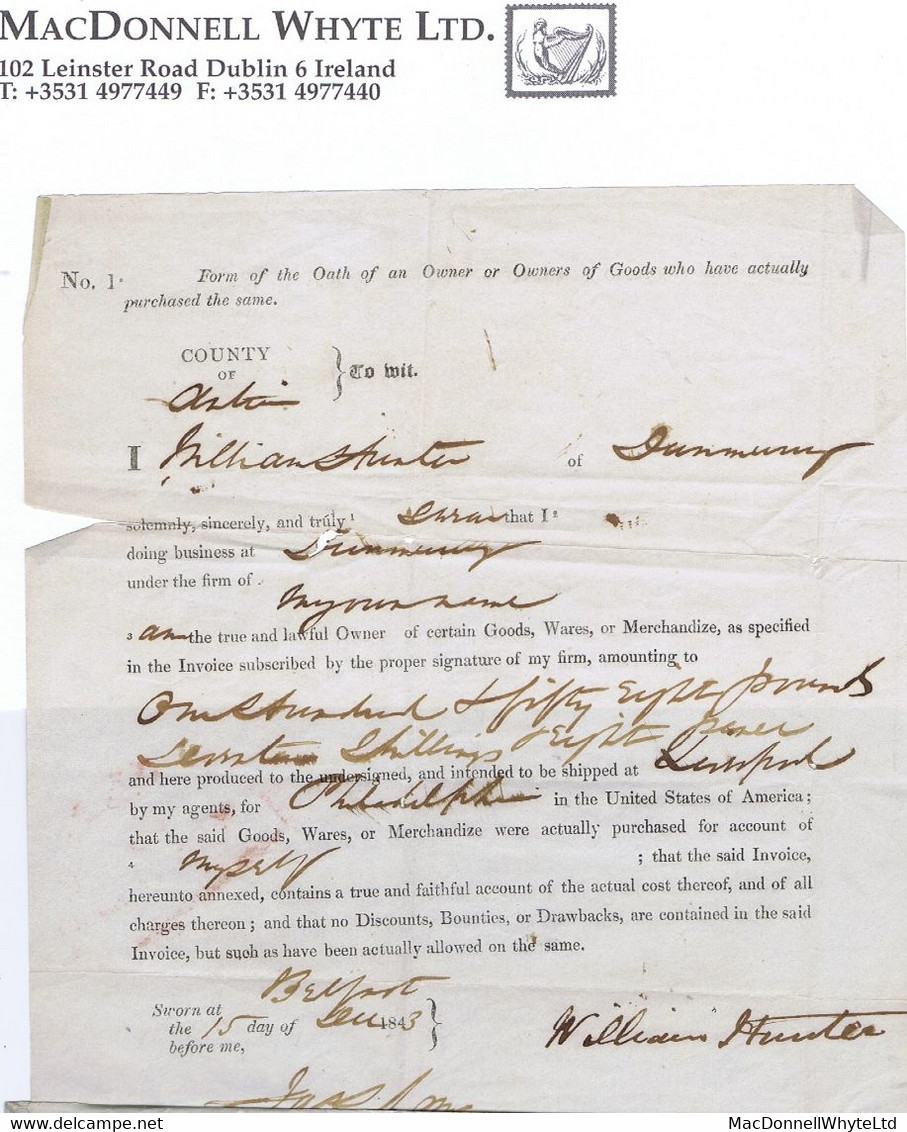 MACDONNELL WHYTE LTD.
102 Leinster Road Dublin 6 Ireland
T: +3531 4977449 F: +3531 4977440
No. 1. Form of the Oath of an Owner or Owners of Goods who have actually
purchased the same.
COUNTY
OF } To wit.
Antrim
I William Hunter of Dunmurry
solemnly, sincerely, and truly 1 Swear that I 2
doing business at Dunmurry
under the firm of
My own name
3 am the true and lawful Owner of certain Goods, Wares, or Merchandize, as specified
in the Invoice subscribed by the proper signature of my firm, amounting to
One Hundred & fifty Eight pounds
Seventeen Shillings & Eight pence
and here produced to the undersigned, and intended to be shipped at Liverpool
by my agents, for Philadelphia in the United States of America;
that the said Goods, Wares, or Merchandize were actually purchased for account of
4 Myself ; that the said Invoice,
hereunto annexed, contains a true and faithful account of the actual cost thereof, and of all
charges thereon; and that no Discounts, Bounties, or Drawbacks, are contained in the said
Invoice, but such as have been actually allowed on the same.
Sworn at Belfast
the 15 day of Dec 1843 }
before me,
William Hunter
MacDonnellWhyteLtd